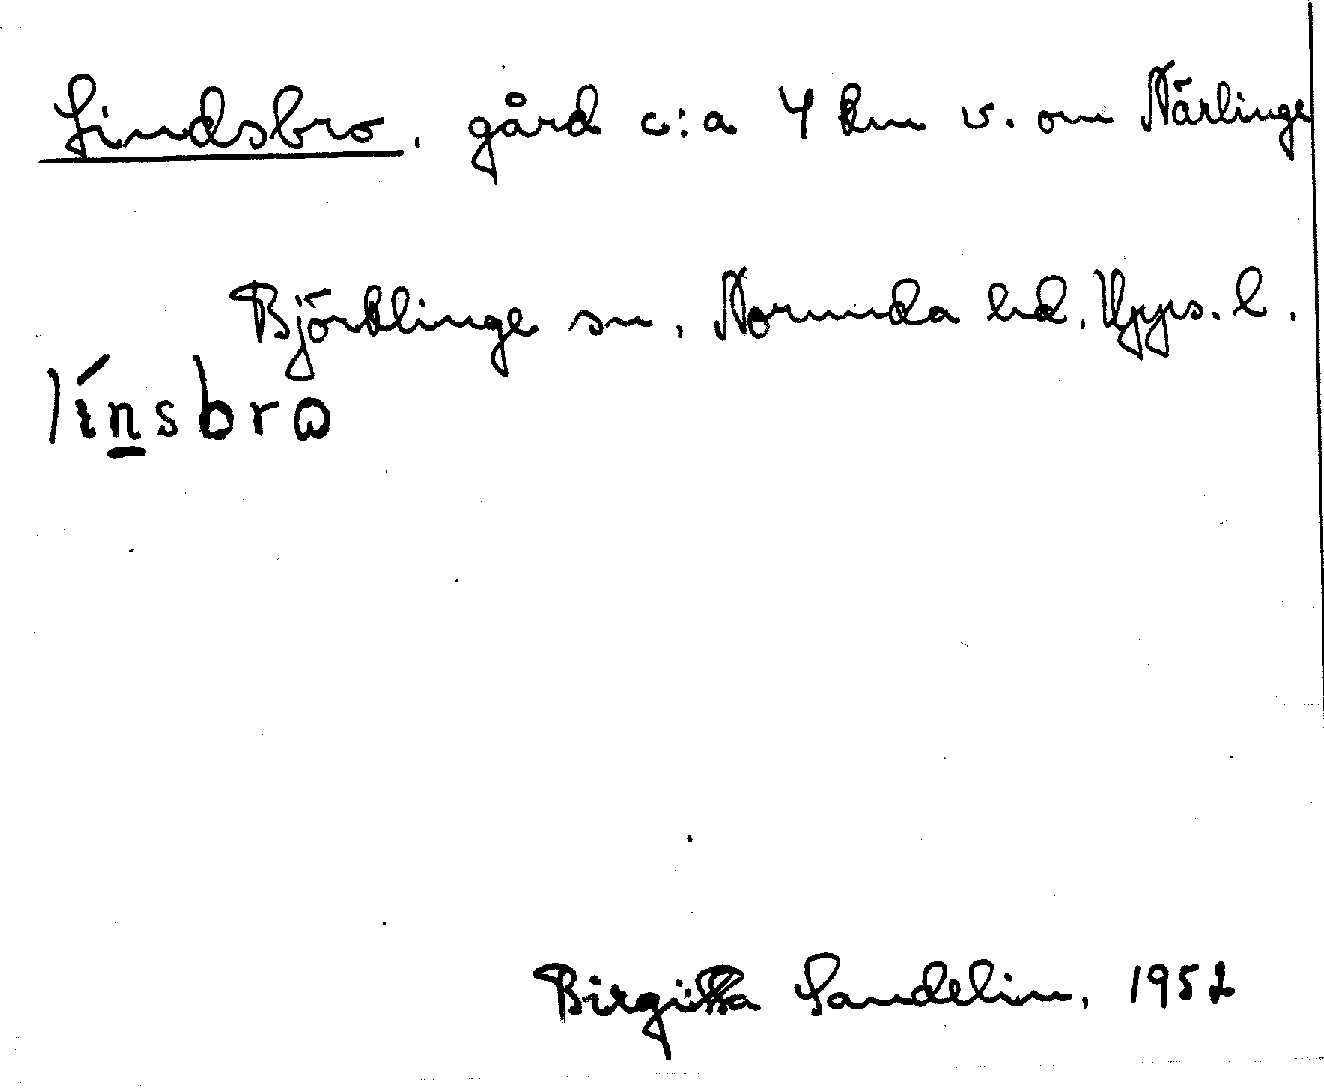 Lindsbro, gård c:a 4 km v. om Närlinge
Björklinge sn, Norunda hd. Upps. l.
línsbro
Birgitta Sandelin, 1952